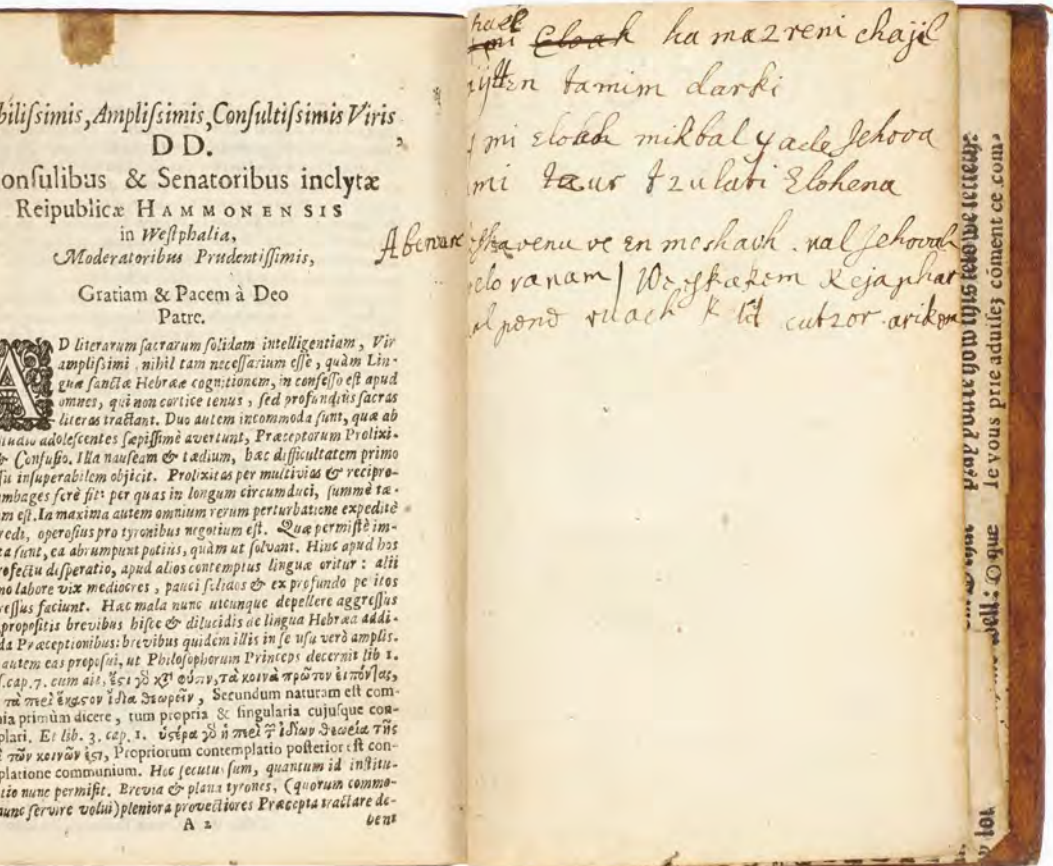 bilissimis, Amplissimis, Consultissimis Viris
DD.
onsulibus & Senatoribus inclytæ
Reipublicæ HAMMONENSIS
in Westphalia,
Moderatoribus Prudentissimis,
Gratiam & Pacem à Deo
Patre.
AD literarum sacrarum solidam intelligentiam, Vir
amplissimi, nihil tam necessarium esse, quàm Lin-
guæ sanctæ Hebrææ cognitionem, in confesso est apud
omnes, qui non cortice tenus, sed profundius sacras
literas tractant. Duo autem incommoda sunt, quæ ab
studio adolescentes sæpissimè avertunt, Præceptorum Prolixi-
& Confusio. Illa nauseam & tædium, hæc difficultatem primo
insuperabilem objicit. Prolixitas per multivias & recipro-
mbages ferè fit: per quas in longum circumduci, summè tæ-
m est. In maxima autem omnium rerum perturbatione expeditè
redi, operosius pro tyronibus negotium est. Quæ permistè im-
ta sunt, ea abrumpunt potius, quàm ut solvant. Hinc apud hos
rofectu disperatio, apud alios contemptus linguæ oritur: alii
no labore vix mediocres, pauci solidos & ex profundo pe itos
ressus faciunt. Hæc mala nunc utcunque depellere aggressus
propositis brevibus hisce & dilucidis de lingua Hebræa addi-
da Præceptionibus: brevibus quidem illis in se usu verò amplis.
autem eas proposui, ut Philosophorum Princeps decernit lib 1.
cap. 7. cum ait, ἔςι γὸ κτ̀ φύσιν, τὰ κοινὰ πρῶτον εἰπόντας,
τὰ περὶ ἕκαςον ἴδια θεωρεῖν, Secundum naturam est com-
nia primùm dicere, tum propria & singularia cujusque con-
plari. Et lib. 3. cap. 1. ὑςέρα γὸ ἡ περὶ τ̃ ἰδίων θεωρία τῆς
τῶν κοινῶν ἐςι, Propriorum contemplatio posterior est con-
platione communium. Hoc secutus sum, quantum id institu-
tio nunc permisit. Brevia & plana tyrones, (quorum commo-
nunc servire volui) pleniora provectiores Præcepta tractare de-
A 2 bent
hael
mi Eloah ha mazreni chajil
tamim darki
mi Eloah mikbal yade Jehova
mi tzur tzulati Elohena
ve en meshavh . val Jehovah
ruach
Je vous prie aduisez cóment ce com-